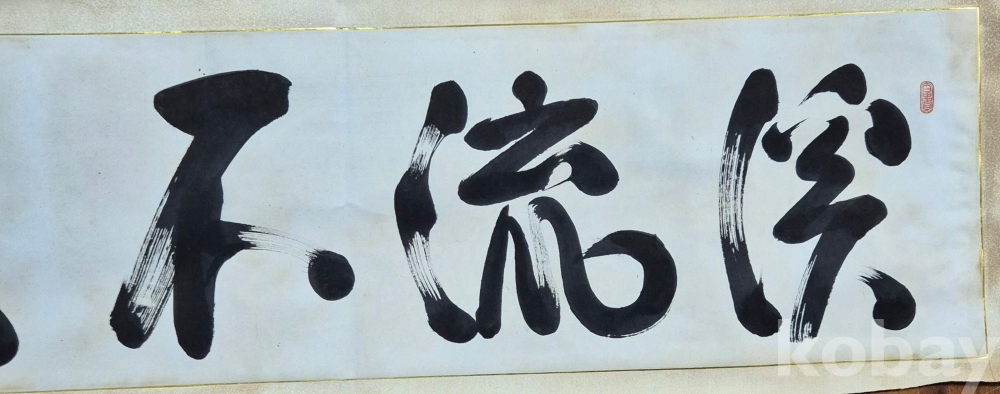 溪流不
kobay